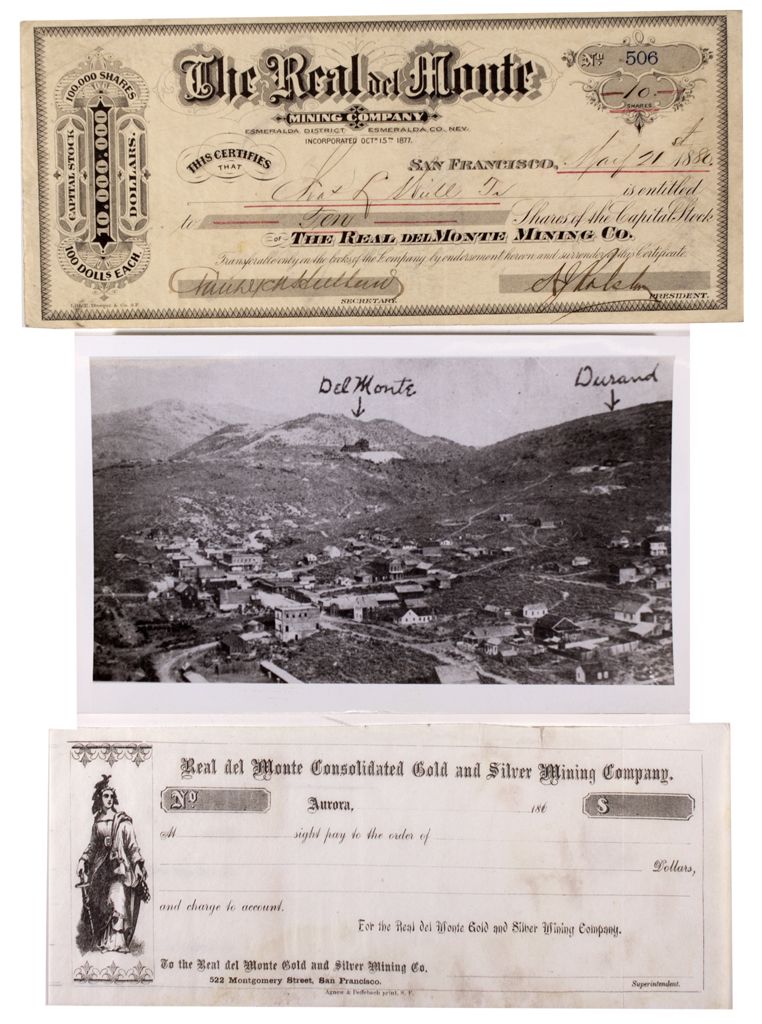 The Real del Monte
MINING COMPANY
ESMERALDA DISTRICT, ESMERALDA CO. NEV.
INCORPORATED OCT. 15TH 1877.
No 506
10
SHARES
100,000 SHARES
CAPITAL STOCK
10.000.000
DOLLARS.
100 DOLLS EACH.
THIS CERTIFIES
THAT
SAN FRANCISCO, May 21st 1880
is entitled
to Ten Shares of the Capital Stock
OF THE REAL DEL MONTE MINING CO.
Transferable only on the books of the Company by endorsement hereon and surrender of this Certificate.
SECRETARY.
PRESIDENT.
Del Monte
Durand
Real del Monte Consolidated Gold and Silver Mining Company.
No
Aurora, 186
$
At sight pay to the order of
Dollars,
and charge to account.
For the Real del Monte Gold and Silver Mining Company.
To the Real del Monte Gold and Silver Mining Co.
522 Montgomery Street, San Francisco.
Superintendent.
Agnew & Deffebach print, S. F.